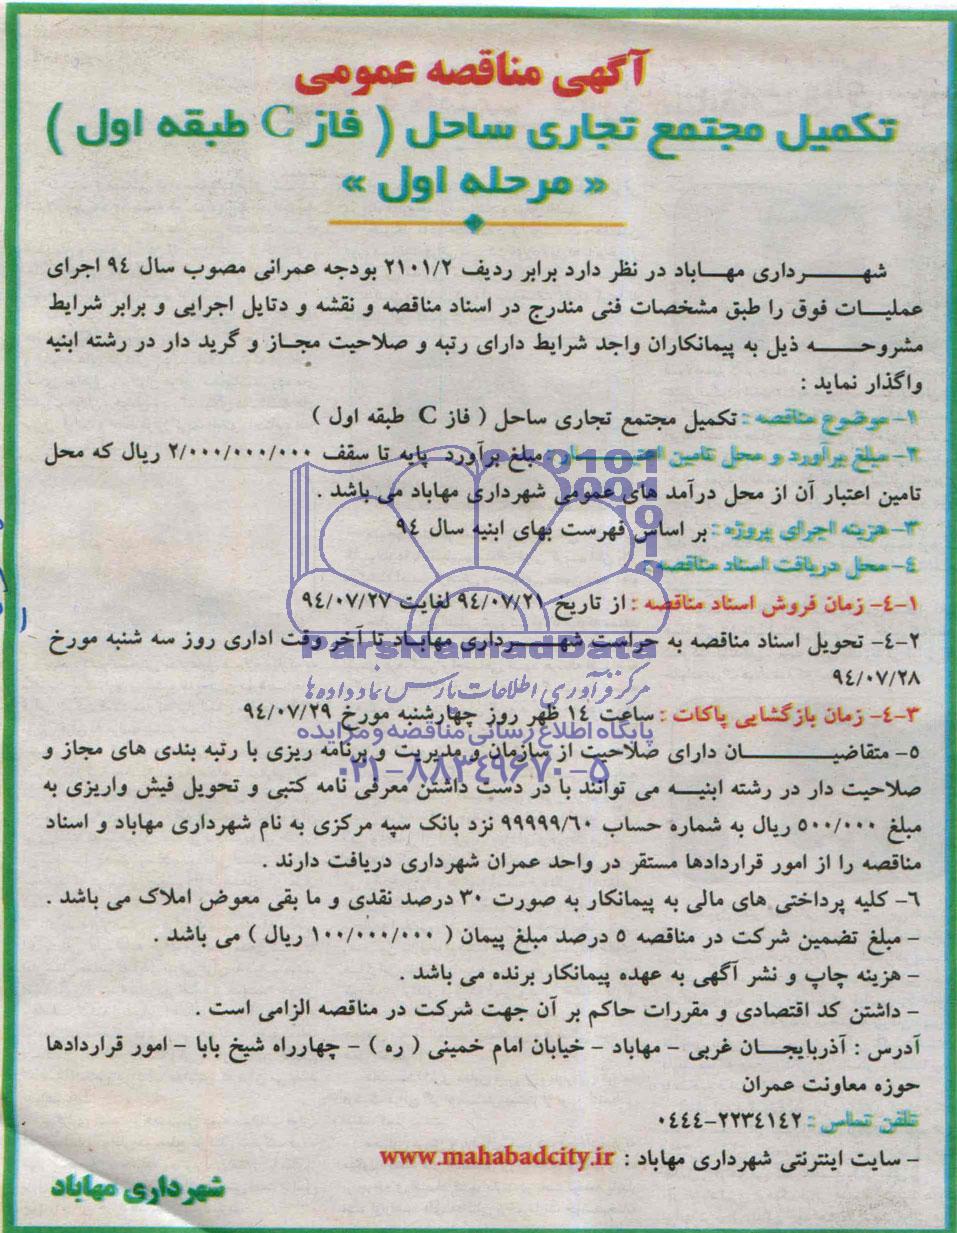 آگهی مناقصه عمومی
تکمیل مجتمع تجاری ساحل ( فاز C طبقه اول )
« مرحله اول »
شهرداری مهاباد در نظر دارد برابر ردیف ۲۱۰۱/۲ بودجه عمرانی مصوب سال ۹٤ اجرای
عملیات فوق را طبق مشخصات فنی مندرج در اسناد مناقصه و نقشه و دتایل اجرایی و برابر شرایط
مشروحه ذیل به پیمانکاران واجد شرایط دارای رتبه و صلاحیت مجاز و گرید دار در رشته ابنیه
واگذار نماید :
۱- موضوع مناقصه : تکمیل مجتمع تجاری ساحل ( فاز C طبقه اول )
۲- مبلغ برآورد و محل تامین اعتبار آن : مبلغ برآورد پایه تا سقف ۲/۰۰۰/۰۰۰/۰۰۰ ریال که محل
تامین اعتبار آن از محل درآمد های عمومی شهرداری مهاباد می باشد .
۳- هزینه اجرای پروژه : بر اساس فهرست بهای ابنیه سال ۹٤
٤- محل دریافت اسناد مناقصه :
٤-۱- زمان فروش اسناد مناقصه : از تاریخ ۹٤/۰۷/۲۱ لغایت ۹٤/۰۷/۲۷
٤-۲- تحویل اسناد مناقصه به حراست شهرداری مهاباد تا آخر وقت اداری روز سه شنبه مورخ
۹٤/۰۷/۲۸
ParsNamadData
مرکز فرآوری اطلاعات پارس نماد داده ها
٤-۳- زمان بازگشایی پاکات : ساعت ۱٤ ظهر روز چهارشنبه مورخ ۹٤/۰۷/۲۹
پایگاه اطلاع رسانی مناقصه و مزایده
۵- متقاضیان دارای صلاحیت از سازمان و مدیریت و برنامه ریزی با رتبه بندی های مجاز و
۰۲۱-۸۸۳۴۹۶۷۰-۵
صلاحیت دار در رشته ابنیه می توانند با در دست داشتن معرفی نامه کتبی و تحویل فیش واریزی به
مبلغ ۵۰۰/۰۰۰ ریال به شماره حساب ۹۹۹۹۹/٦۰ نزد بانک سپه مرکزی به نام شهرداری مهاباد و اسناد
مناقصه را از امور قراردادها مستقر در واحد عمران شهرداری دریافت دارند .
٦- کلیه پرداختی های مالی به پیمانکار به صورت ۳۰ درصد نقدی و ما بقی معوض املاک می باشد .
- مبلغ تضمین شرکت در مناقصه ۵ درصد مبلغ پیمان ( ۱۰۰/۰۰۰/۰۰۰ ریال ) می باشد .
- هزینه چاپ و نشر آگهی به عهده پیمانکار برنده می باشد .
- داشتن کد اقتصادی و مقررات حاکم بر آن جهت شرکت در مناقصه الزامی است .
آدرس : آذربایجان غربی - مهاباد - خیابان امام خمینی ( ره ) - چهارراه شیخ بابا - امور قراردادها
حوزه معاونت عمران
تلفن تماس : ۰٤٤٤-۲۲۳٤۱٤۲
- سایت اینترنتی شهرداری مهاباد : www.mahabadcity.ir
شهرداری مهاباد